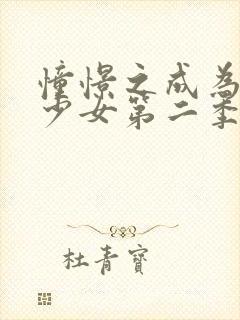 憧憬之成為
少女第二季
杜青寶